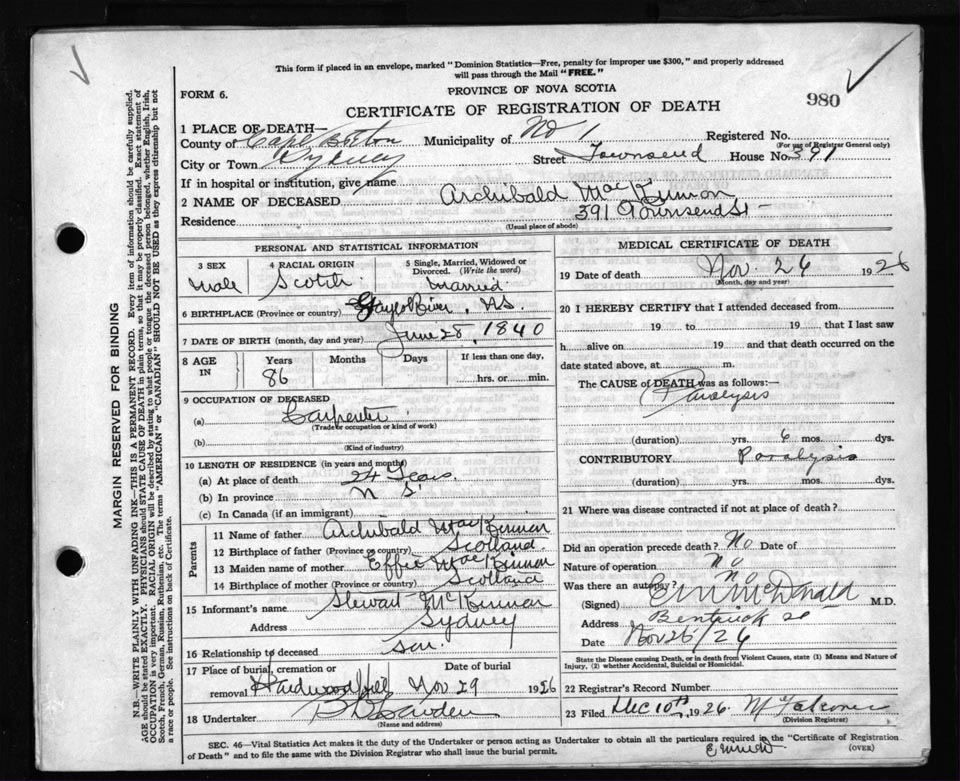 This form if placed in an envelope, marked "Dominion Statistics—Free, penalty for improper use $300," and properly addressed
will pass through the Mail "FREE."
FORM 6.
PROVINCE OF NOVA SCOTIA
980
CERTIFICATE OF REGISTRATION OF DEATH
1 PLACE OF DEATH—
County of Cape Breton Municipality of No 1 Registered No.
(For use of Registrar General only)
City or Town Sydney Street Townsend House No. 391
If in hospital or institution, give name
2 NAME OF DECEASED Archibald MacKinnon
Residence 391 Townsend St
(Usual place of abode)
PERSONAL AND STATISTICAL INFORMATION
3 SEX
Male
4 RACIAL ORIGIN
Scotch
5 Single, Married, Widowed or
Divorced. (Write the word)
Married
6 BIRTHPLACE (Province or country) River, N.S.
7 DATE OF BIRTH (month, day and year) June 28, 1840
8 AGE
IN
Years
86
Months
Days
If less than one day,
hrs. or min.
9 OCCUPATION OF DECEASED
(a) Carpenter
(Trade or occupation or kind of work)
(b)
(Kind of industry)
10 LENGTH OF RESIDENCE (in years and months)
(a) At place of death 24 Years
(b) In province N S
(c) In Canada (if an immigrant)
Parents
11 Name of father Archibald MacKinnon
12 Birthplace of father (Province or country) Scotland
13 Maiden name of mother Effie MacKinnon
14 Birthplace of mother (Province or country) Scotland
15 Informant's name Stewart McKinnon
Address Sydney
16 Relationship to deceased son
17 Place of burial, cremation or
removal Hardwood Hill
Date of burial
Nov 29 1926
18 Undertaker
(Name and address)
MEDICAL CERTIFICATE OF DEATH
19 Date of death Nov. 26 1926
(Month, day and year)
20 I HEREBY CERTIFY that I attended deceased from
19 to 19 that I last saw
h alive on 19 and that death occurred on the
date stated above, at m.
The CAUSE OF DEATH was as follows:
Paralysis
(duration) yrs. 6 mos. dys.
CONTRIBUTORY Paralysis
(duration) yrs. mos. dys.
21 Where was disease contracted if not at place of death?
Did an operation precede death? No Date of
Nature of operation no
Was there an autopsy? No
(Signed) McDonald M.D.
Address Bentinck St
Date Nov 26/26
State the Disease causing Death, or in death from Violent Causes, state (1) Means and Nature of
Injury, (2) whether Accidental, Suicidal or Homicidal.
22 Registrar's Record Number
23 Filed Dec 10th 1926
(Division Registrar)
SEC. 46—Vital Statistics Act makes it the duty of the Undertaker or person acting as Undertaker to obtain all the particulars required in the "Certificate of Registration
of Death" and to file the same with the Division Registrar who shall issue the burial permit.
(OVER)
MARGIN RESERVED FOR BINDING
N.B.—WRITE PLAINLY WITH UNFADING INK—THIS IS A PERMANENT RECORD. Every item of information should be carefully supplied.
AGE should be stated EXACTLY. PHYSICIANS should STATE CAUSE OF DEATH in plain terms, so that it may be properly classified. Exact statement of
OCCUPATION is very important. RACIAL ORIGIN will be described by stating to what people or tongue the deceased person belonged, whether English, Irish,
Scotch, French, German, Russian, Ruthenian, etc. The terms "AMERICAN" or "CANADIAN" SHOULD NOT BE USED as they express citizenship but not
a race or people. See instructions on back of Certificate.